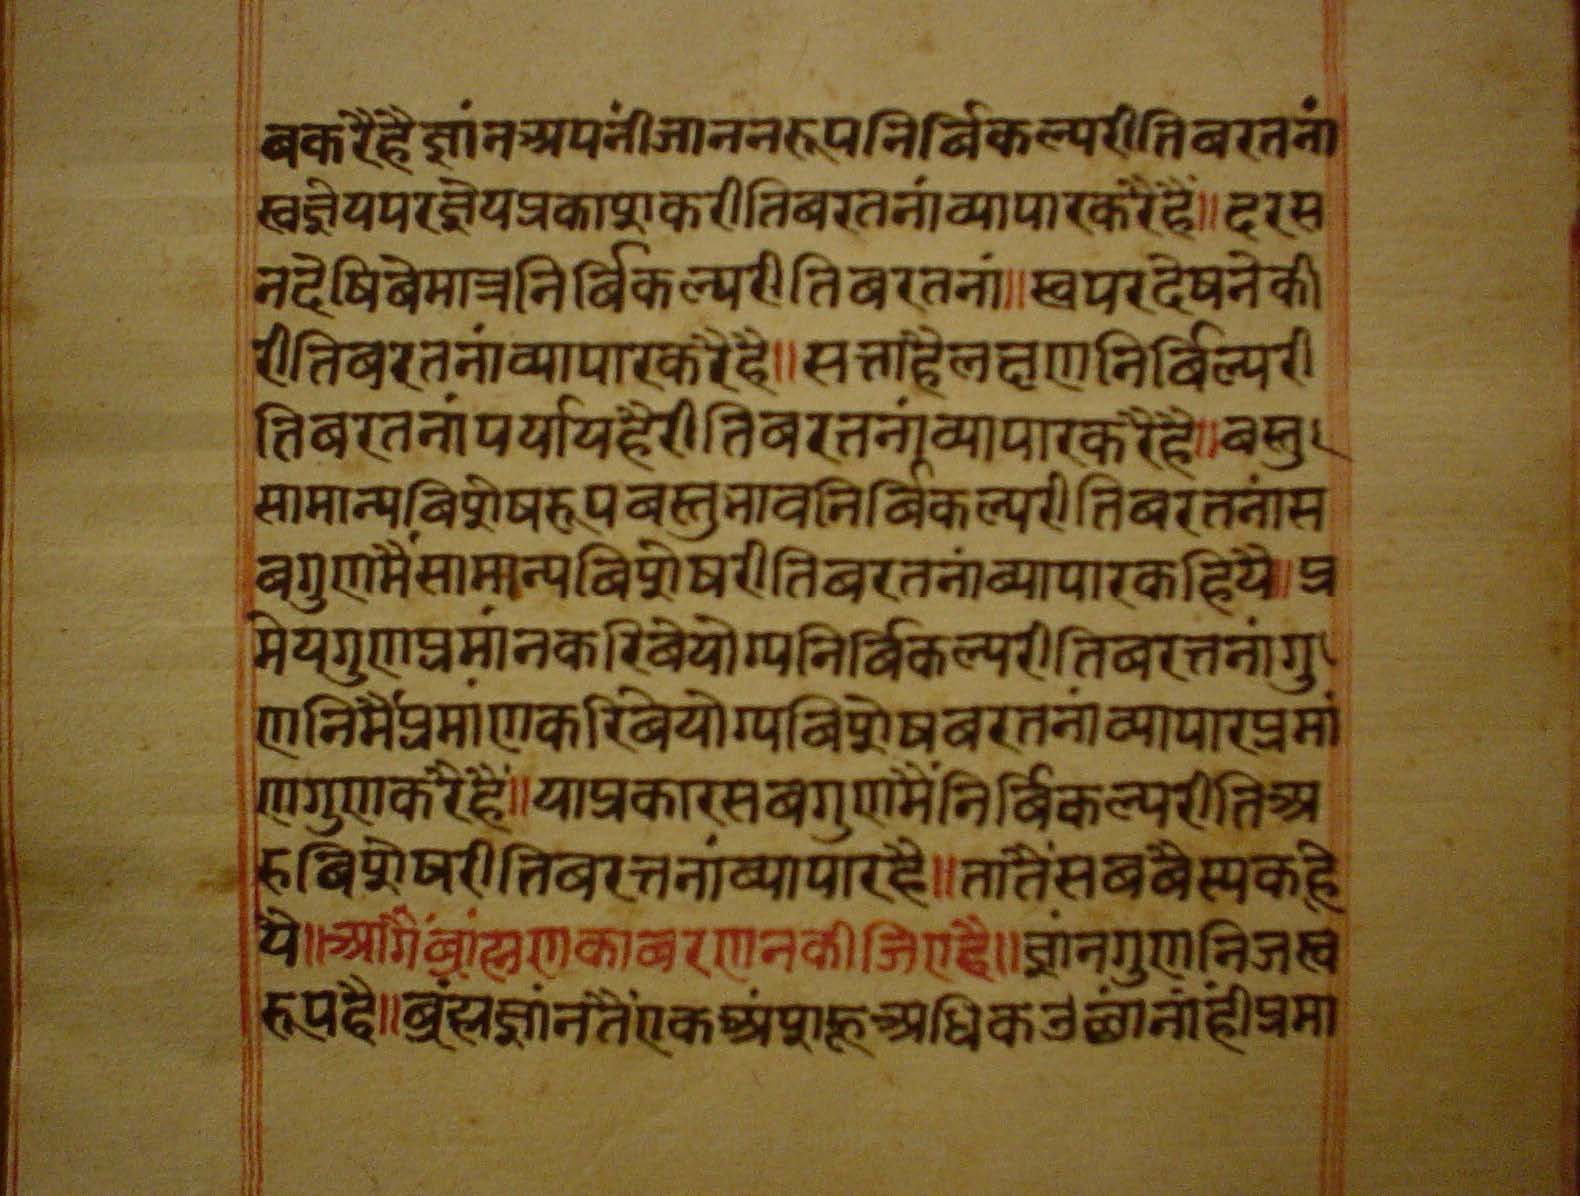 बकरैहैज्ञांनअपनींजाननरूपनिर्बिकल्परीतिबरतनां
स्वज्ञेयपरज्ञेयप्रकाशकरीतिबरतनांव्यापारकरैंहैं॥दरस
नदेषिबेमात्रनिर्बिकल्परीतिबरतनां॥स्वपरदेषनेकी
रीतिबरतनांव्यापारकरैहै॥सत्तांहैलक्षणनिर्बिल्परी
तिबरतनांपर्यायहैरीतिबरतनांव्यापारकरैहै॥बस्तु
सामान्यबिशेषरूपबस्तुभावनिर्बिकल्परीतिबरतनांस
बगुणमैंसामान्यबिशेषरीतिबरतनांव्यापारकहियै॥प्र
मेयगुणप्रमांनकरिबेयोग्यनिर्बिकल्परीतिबरतनांगु
णनिमैंप्रमांणकरिबेयोग्यबिशेषबरतनांव्यापारप्रमां
णगुणकरैंहैं॥याप्रकारसबगुणमैंनिर्बिकल्परीतिअ
रुबिशेषरीतिबरतनांव्यापारहै॥तातैंसबबैस्यकहि
यै॥आगैंब्रांह्मणकाबरणनकीजिएहै॥ज्ञांनगुणनिजस्व
रूपहै॥ब्रंह्मज्ञांनतैंएकअंशहूअधिकउछांनांहींप्रमा